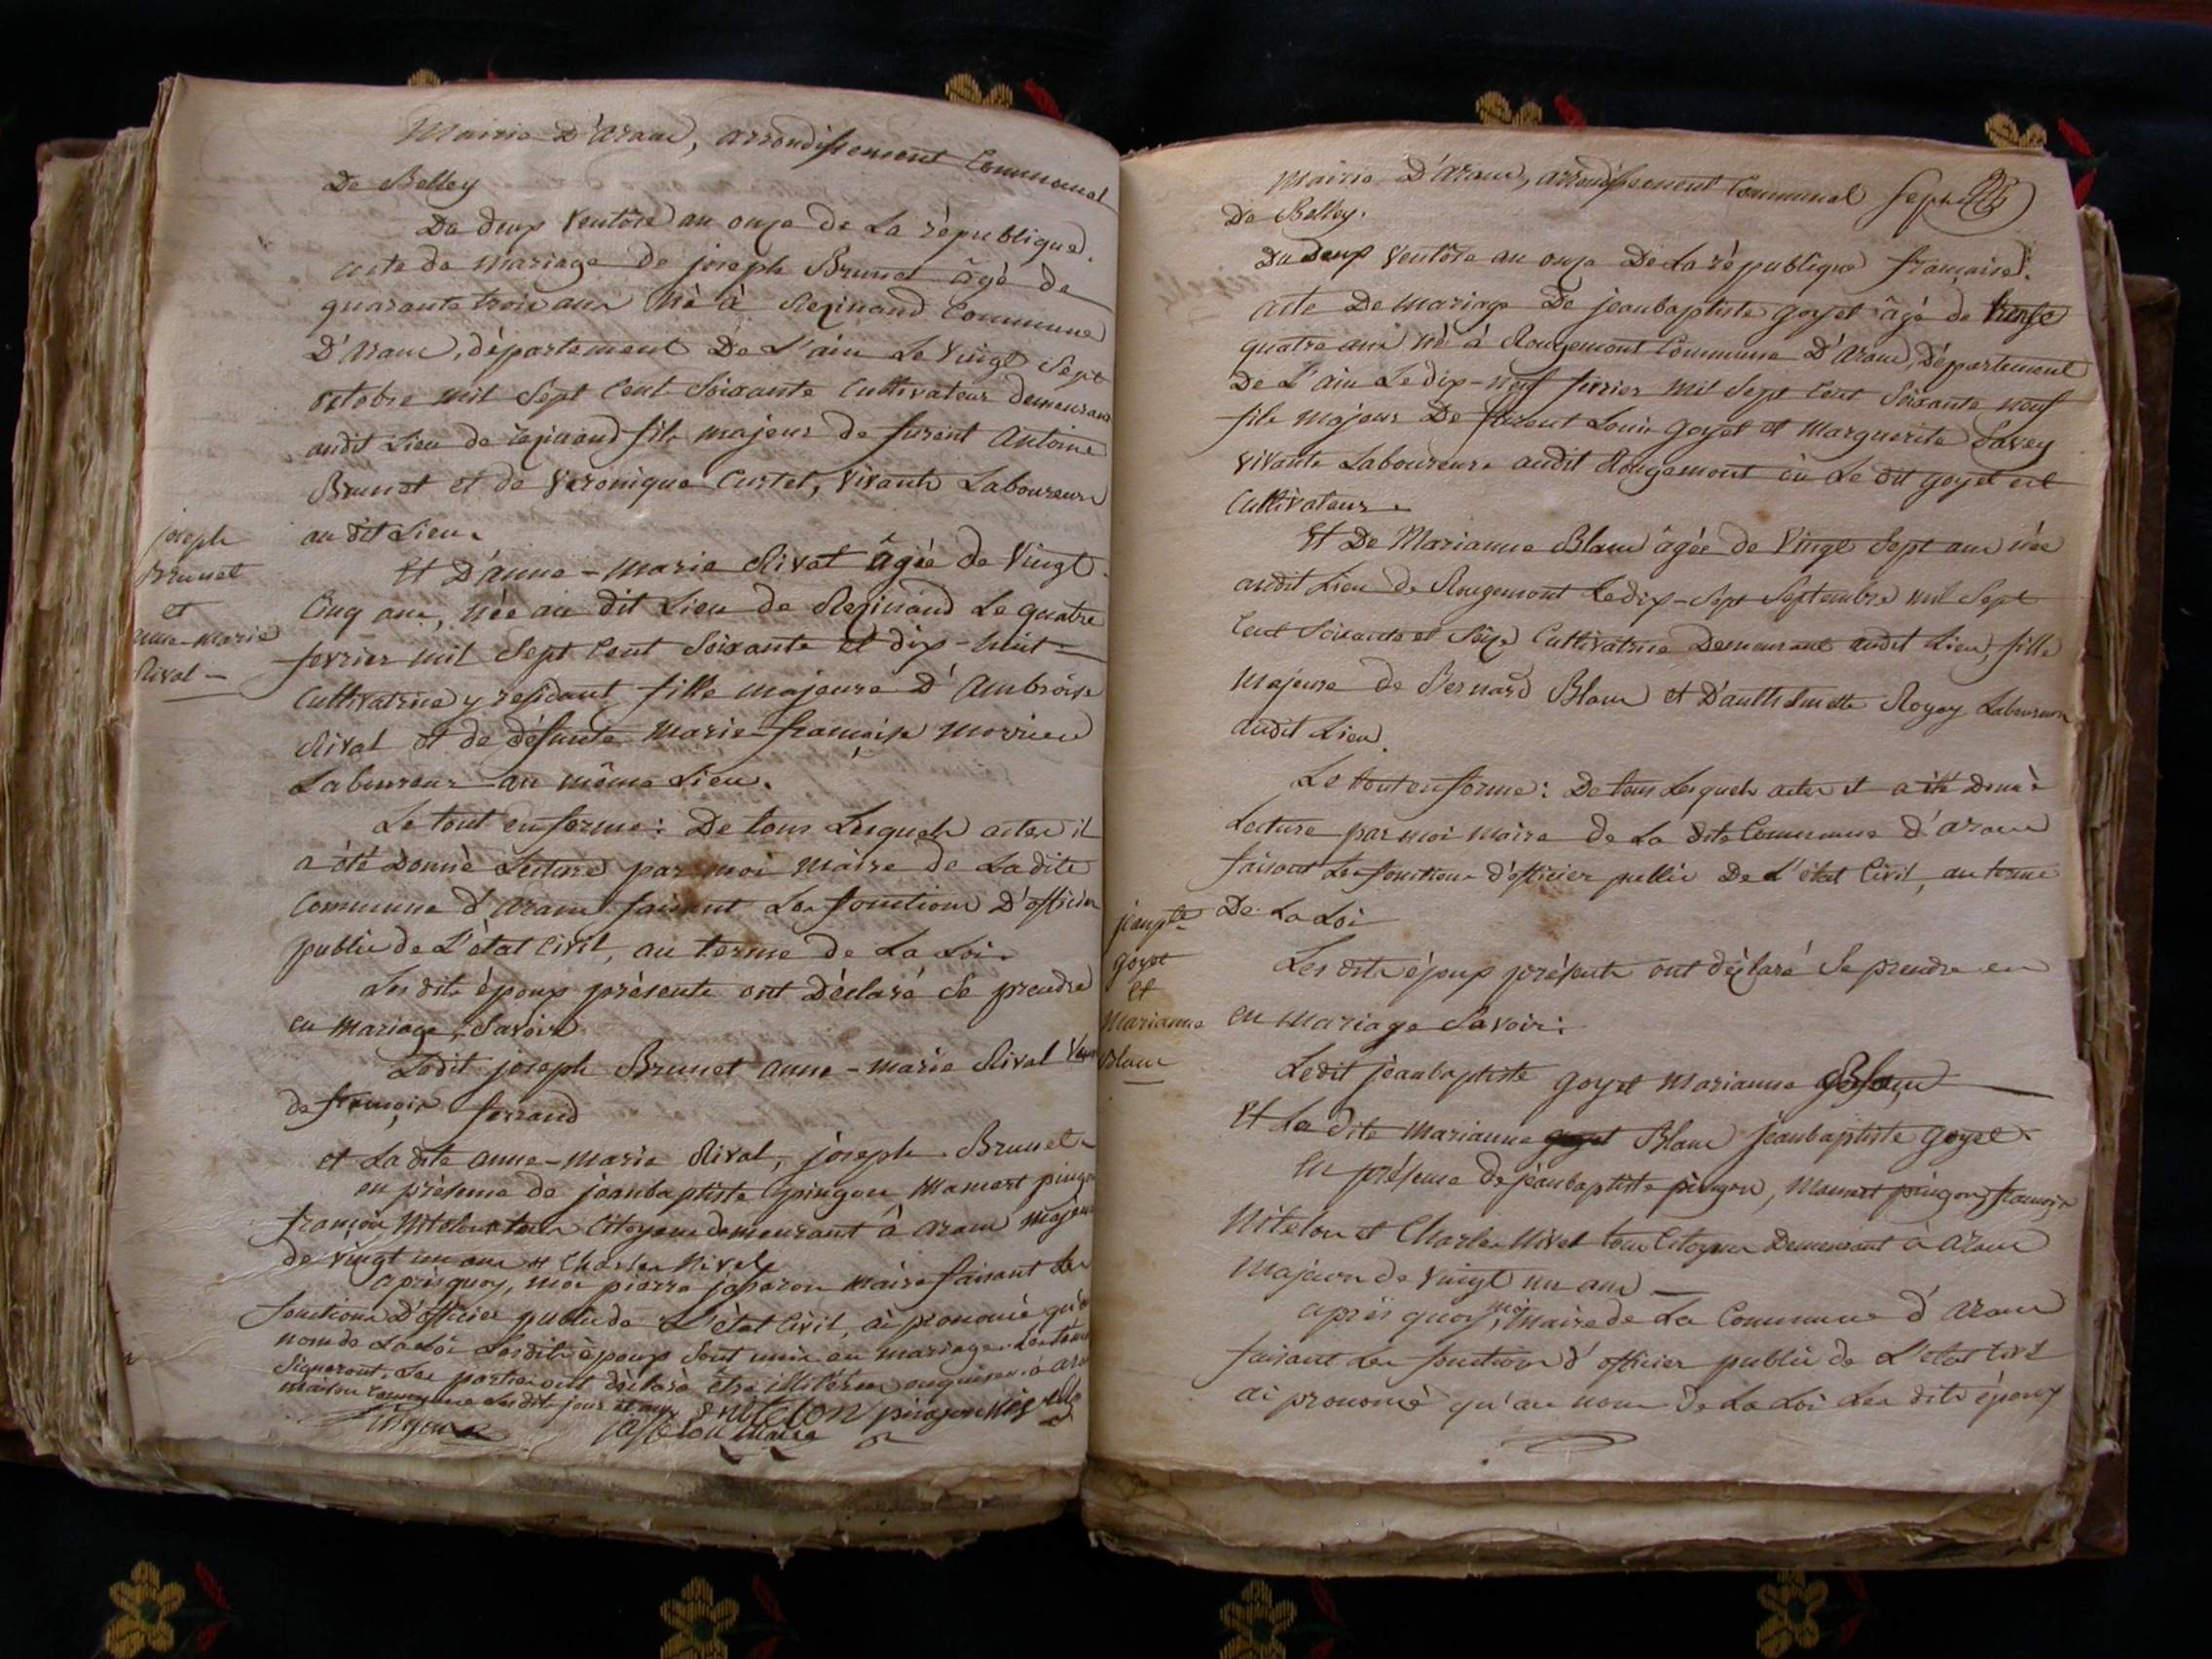 Mairie D'aranc, arrondissement Communal
De Belley
Du deux Ventôse an onze de La république.
acte de mariage de joseph Brunet âgé de
quarante trois ans né à Reginand Commune
D'aranc, département De L'ain Le vingt Sept
octobre mil Sept Cent Soixante Cultivateur demeurant
audit Lieu de reginand fils majeur de furent Antoine
Brunet et de Veronique Curtet, vivants Laboureurs
au dit Lieu.
joseph
Brunet
et
anne-marie
Rival
Et D'anne-marie Rival âgée de Vingt
Cinq ans, née au dit Lieu de Reginand Le quatre
fevrier mil Sept Cent Soixante et dix-huit
Cultivatrice y residant fille majeure D'Ambroise
Rival et de défunte marie-françoise
Laboureur au même Lieu.
Le tout en forme: De tous Lesquels actes il
a été Donné Lecture par moi maire de La dite
Commune d'aranc faisant Les fonctions D'officier
public de L'état Civil, au terme de La Loi.
Les dits époux présents ont Déclaré Se prendre
en mariage, Savoir
Ledit joseph Brunet anne-marie Rival
de françois ferrand
et La dite anne-marie Rival, joseph Brunet
en présence de jeanbaptiste pingon Mamert
françois Nitelon tous Citoyens demeurant à aranc
de vingt un ans et Charles Nivel
après quoy, moi pierre jasseron maire faisant Les
fonctions D'officier public de L'état Civil, ai prononcé
nom de La Loi Les dits époux Sont unis en mariage.
Signeront. Les parties ont déclaré être illitérés
maison Commune Les dits jour et an
nitelon pingon
pingon jasseron maire
Mairie D'aranc, arrondissement Communal
De Belley.
Du Deux Ventôse an onze De La république française.
acte De mariage De jeanbaptiste goyet âgé de trente
quatre ans né à Rougemont Commune D'aranc, Département
De L'ain Le dix-neuf fevrier mil Sept Cent Soixante neuf
fils majeur De furent Louis goyet et Marguerite Savey
vivants Laboureurs audit Rougemont où Le dit goyet est
Cultivateur.
Et De Marianne Blanc âgée de Vingt Sept ans née
audit Lieu de Rougemont Le dix-Sept Septembre mil Sept
Cent Soixante et Seize Cultivatrice Demeurant audit Lieu, fille
majeure de Bernard Blanc et D'anthelmette Laboureurs
audit Lieu.
Le tout en forme: De tous Lesquels actes il a été Donné
Lecture par moi maire de La dite Commune d'aranc
faisant Les fonctions d'officier public De L'état Civil, au terme
De La Loi
jeanbte
goyet
et
Marianne
Blanc
Les dits époux présents ont déclaré Se prendre en
en mariage Savoir:
Ledit jeanbaptiste goyet Marianne Blanc
Et La dite Marianne goyet Blanc jeanbaptiste goyet.
En présence de jeanbaptiste pingon, Mamert pingon, françois
Nitelon et Charles Nivel tous Citoyens Demeurant à aranc
majeurs de Vingt un ans
après quoy, moi, maire de La Commune d'aranc
faisant Les fonctions d'officier public de L'état Civil
ai prononcé qu'au nom De La Loi Les dits époux